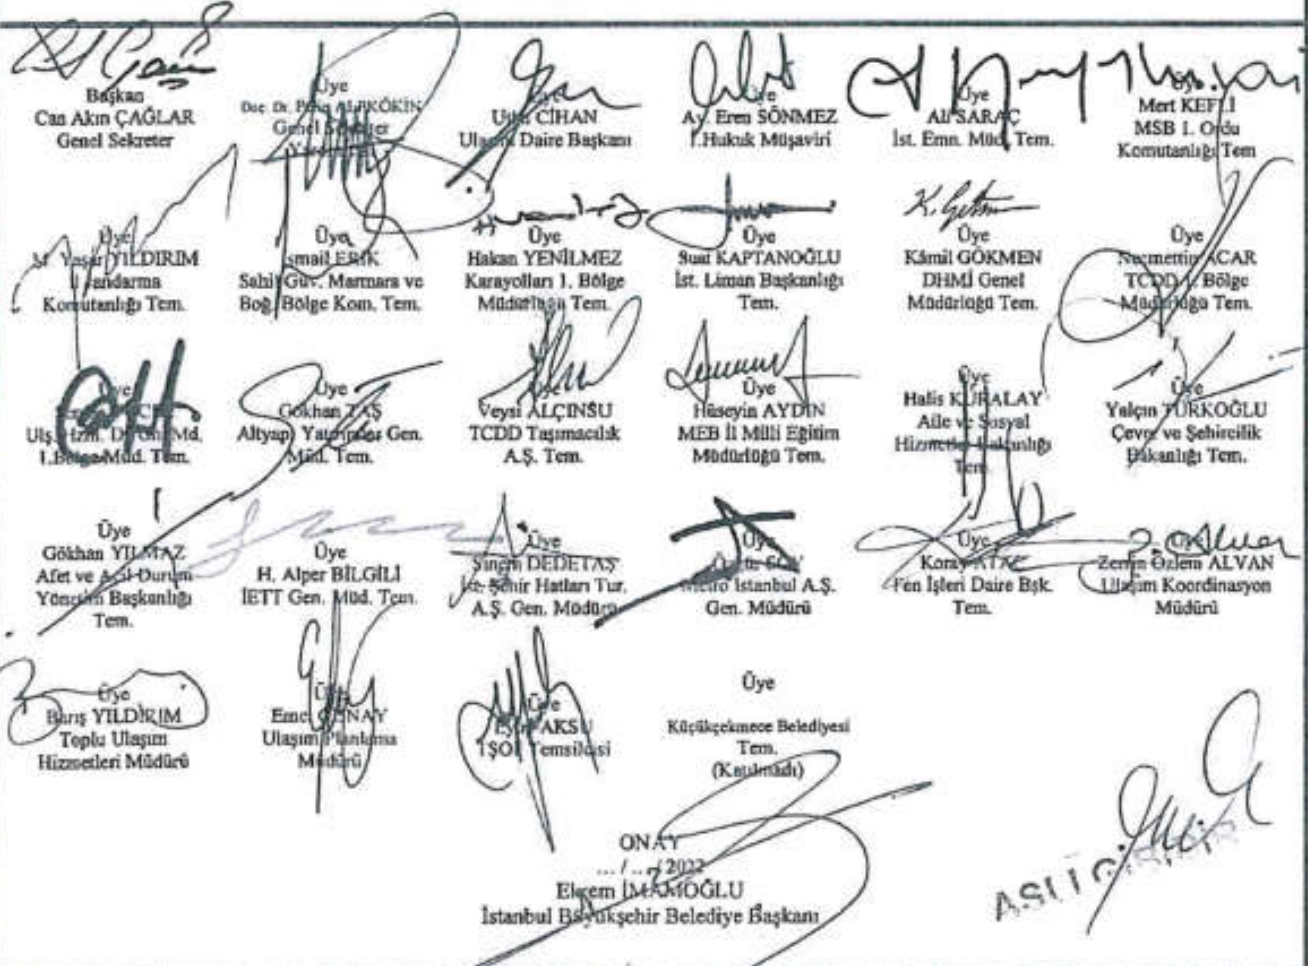 Başkan
Can Akın ÇAĞLAR
Genel Sekreter
Üye
Doç. Dr. Pelin ALPKÖKİN
Genel Sekreter
Üye
CİHAN
Ulaşım Daire Başkanı
Üye
Av. Eren SÖNMEZ
1.Hukuk Müşaviri
Üye
Ali SARAÇ
İst. Emn. Müd. Tem.
Üye
Mert KEFLİ
MSB 1. Ordu
Komutanlığı Tem
Üye
M. Yaşar YILDIRIM
İl Jandarma
Komutanlığı Tem.
Üye
İsmail ERİK
Sahil Güv. Marmara ve
Boğ. Bölge Kom. Tem.
Üye
Hakan YENİLMEZ
Karayolları 1. Bölge
Müdürlüğü Tem.
Üye
Suat KAPTANOĞLU
İst. Liman Başkanlığı
Tem.
Üye
Kâmil GÖKMEN
DHMİ Genel
Müdürlüğü Tem.
Üye
Necmettin ACAR
TCDD 1. Bölge
Müdürlüğü Tem.
Üye
Ulş. Hzm.
1.Bölge Müd. Tem.
Üye
Gökhan TAŞ
Altyapı Yatırımları Gen.
Müd. Tem.
Üye
Veysi ALÇINSU
TCDD Taşımacılık
A.Ş. Tem.
Üye
Hüseyin AYDIN
MEB İl Milli Eğitim
Müdürlüğü Tem.
Üye
Halis KURALAY
Aile ve Sosyal
Hizmetler Bakanlığı
Tem.
Üye
Yalçın TÜRKOĞLU
Çevre ve Şehircilik
Bakanlığı Tem.
Üye
Gökhan YILMAZ
Afet ve Acil Durum
Yönetim Başkanlığı
Tem.
Üye
H. Alper BİLGİLİ
İETT Gen. Müd. Tem.
Üye
Sinem DEDETAŞ
İst. Şehir Hatları Tur.
A.Ş. Gen. Müdürü
Üye
SOY
Metro İstanbul A.Ş.
Gen. Müdürü
Üye
Koray ATAÇ
Fen İşleri Daire Bşk.
Tem.
Üye
Zerrin Özlem ALVAN
Ulaşım Koordinasyon
Müdürü
Üye
Barış YILDIRIM
Toplu Ulaşım
Hizmetleri Müdürü
Üye
Ulaşım Planlama
Müdürü
Üye
AKSU
Temsilcisi
Üye
Küçükçekmece Belediyesi
Tem.
(Katılmadı)
ONAY
... / ... / 2022
Ekrem İMAMOĞLU
İstanbul Büyükşehir Belediye Başkanı
ASLI GİBİDİR